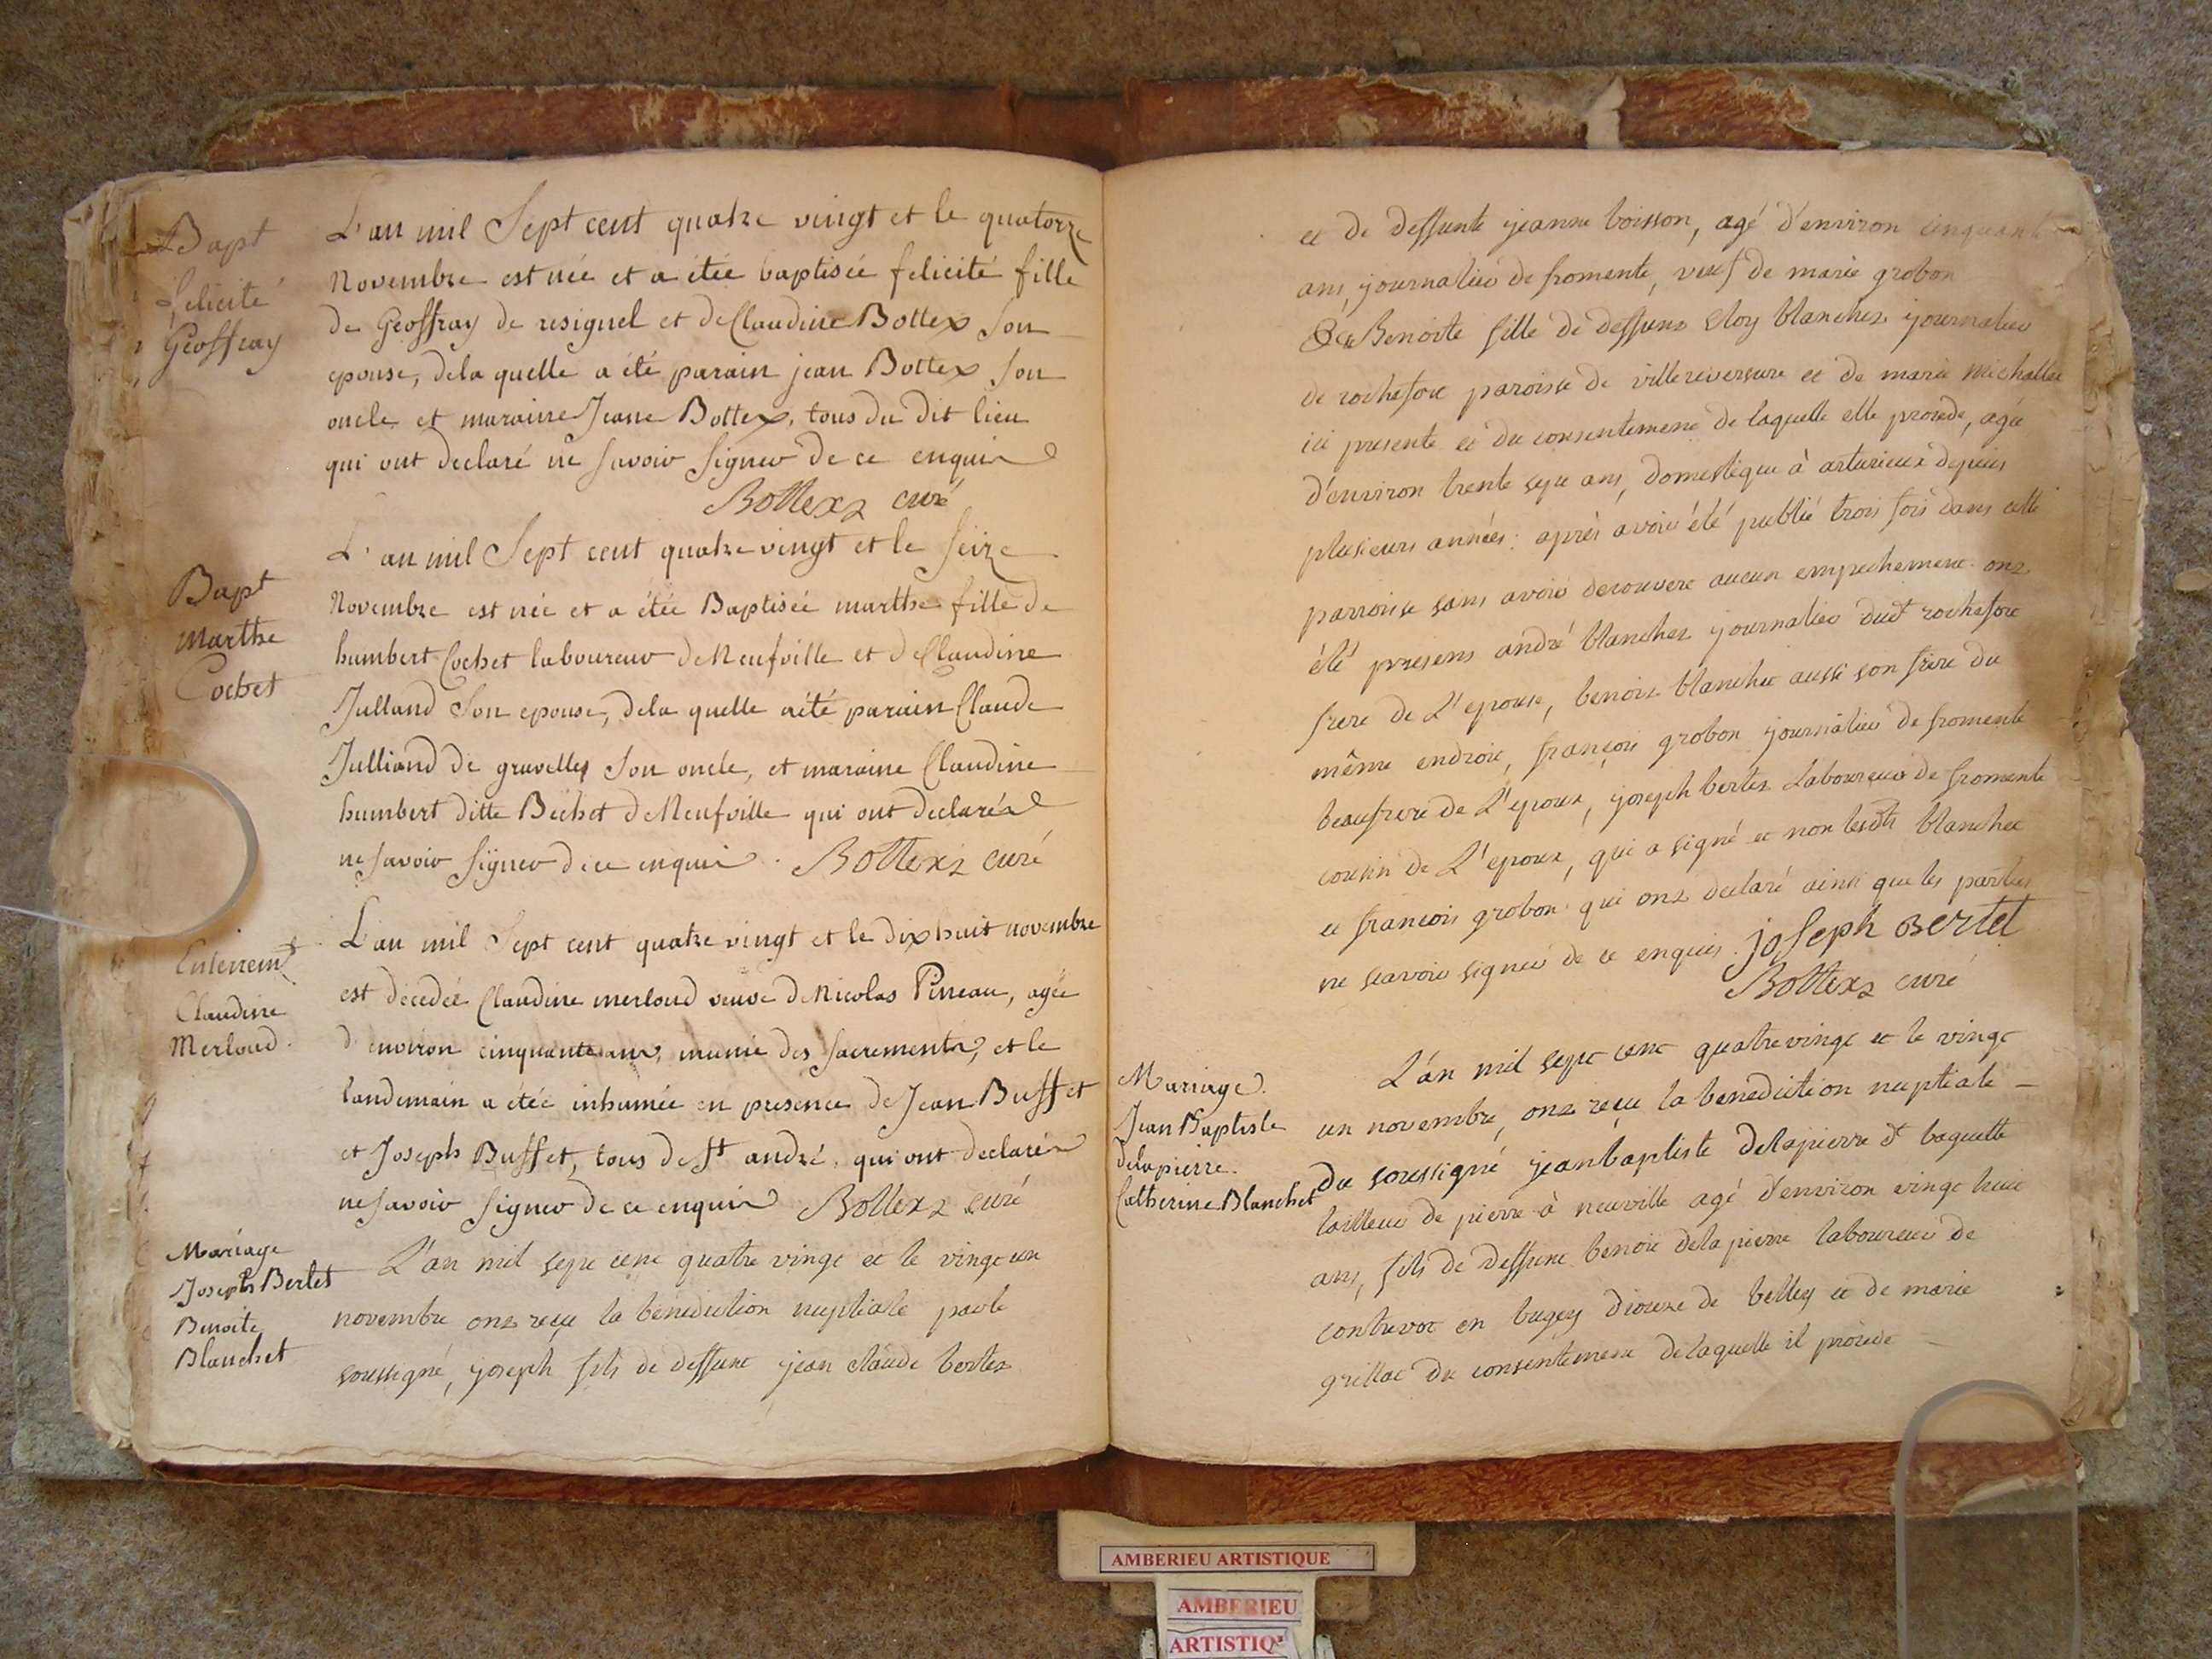 Bapt
felicité
Geoffray
L'an mil Sept cent quatre vingt et le quatorze
Novembre est née et a étée baptisée felicité fille
de Geoffray de resignel et de Claudine Bottex son
epouse, de la quelle a été parain jean Bottex son
oncle et maraine Jeane Bottex, tous du dit lieu
qui ont declaré ne savoir signer de ce enquis
Bottex curé
Bapt
Marthe
Cochet
L'an mil Sept cent quatre vingt et le seize
Novembre est née et a étée Baptisée marthe fille de
humbert Cochet laboureur de Neufville et de Claudine
Julland son epouse, de la quelle a été parain Claude
Julliand de gravelles son oncle, et maraine Claudine
humbert ditte Bechet de Neufville qui ont declaré
ne savoir signer de ce enquis. Bottex curé
Enterremt
Claudine
Merloud.
L'an mil Sept cent quatre vingt et le dix huit novembre
est décedée Claudine merloud veuve de Nicolas Pineau, agée
d'environ cinquante ans, munie des sacrements, et le
landemain a étée inhumée en presence de Jean Buffet
et Joseph Buffet, tous de St andré, qui ont declaré
ne savoir signer de ce enquis Bottex curé
Mariage
Joseph Bertet
Benoite
Blanchet
L'an mil sept cent quatre vingt et le vingt un
novembre ont reçu la benediction nuptiale par le
soussigné, joseph fils de deffunt jean claude bertet
et de deffunte jeanne boisson, agé d'environ cinquante
ans, journalier de fromente, veuf de marie grobon
Et Benoite fille de deffunt Eloy blanchet journalier
de rochefort paroisse de villereversure et de marie michallet
ici presente et du consentement de laquelle elle procede, agée
d'environ trente sept ans, domestique à arturieux depuis
plusieurs années: après avoir été publié trois fois dans cette
parroisse sans avoir decouvert aucun empechement. ont
été presens andré blanchet journalier dudt rochefort
frere de L'epouse, benoit blanchet aussi son frere du
même endroit, françois grobon journalier de fromente
beaufrere de L'epoux, joseph bertet Laboureur de fromente
cousin de L'epoux, qui a signé et non lesdts blanchet
et francois grobon qui ont declaré ainsi que les parties
ne scavoir signer de ce enquis. joseph Bertet
Bottex curé
Mariage.
Jean Baptiste
delapierre.
Catherine Blanchet
L'an mil sept cent quatre vingt et le vingt
un novembre, ont reçu la benediction nuptiale
du soussigné jean baptiste delapierre dt baquette
tailleur de pierre à neuville agé d'environ vingt huit
ans, fils de deffunt benoit delapierre laboureur de
contrevot en bugey diocese de belley et de marie
grillot du consentement de laquelle il procede
AMBERIEU ARTISTIQUE
AMBERIEU
ARTISTIQ